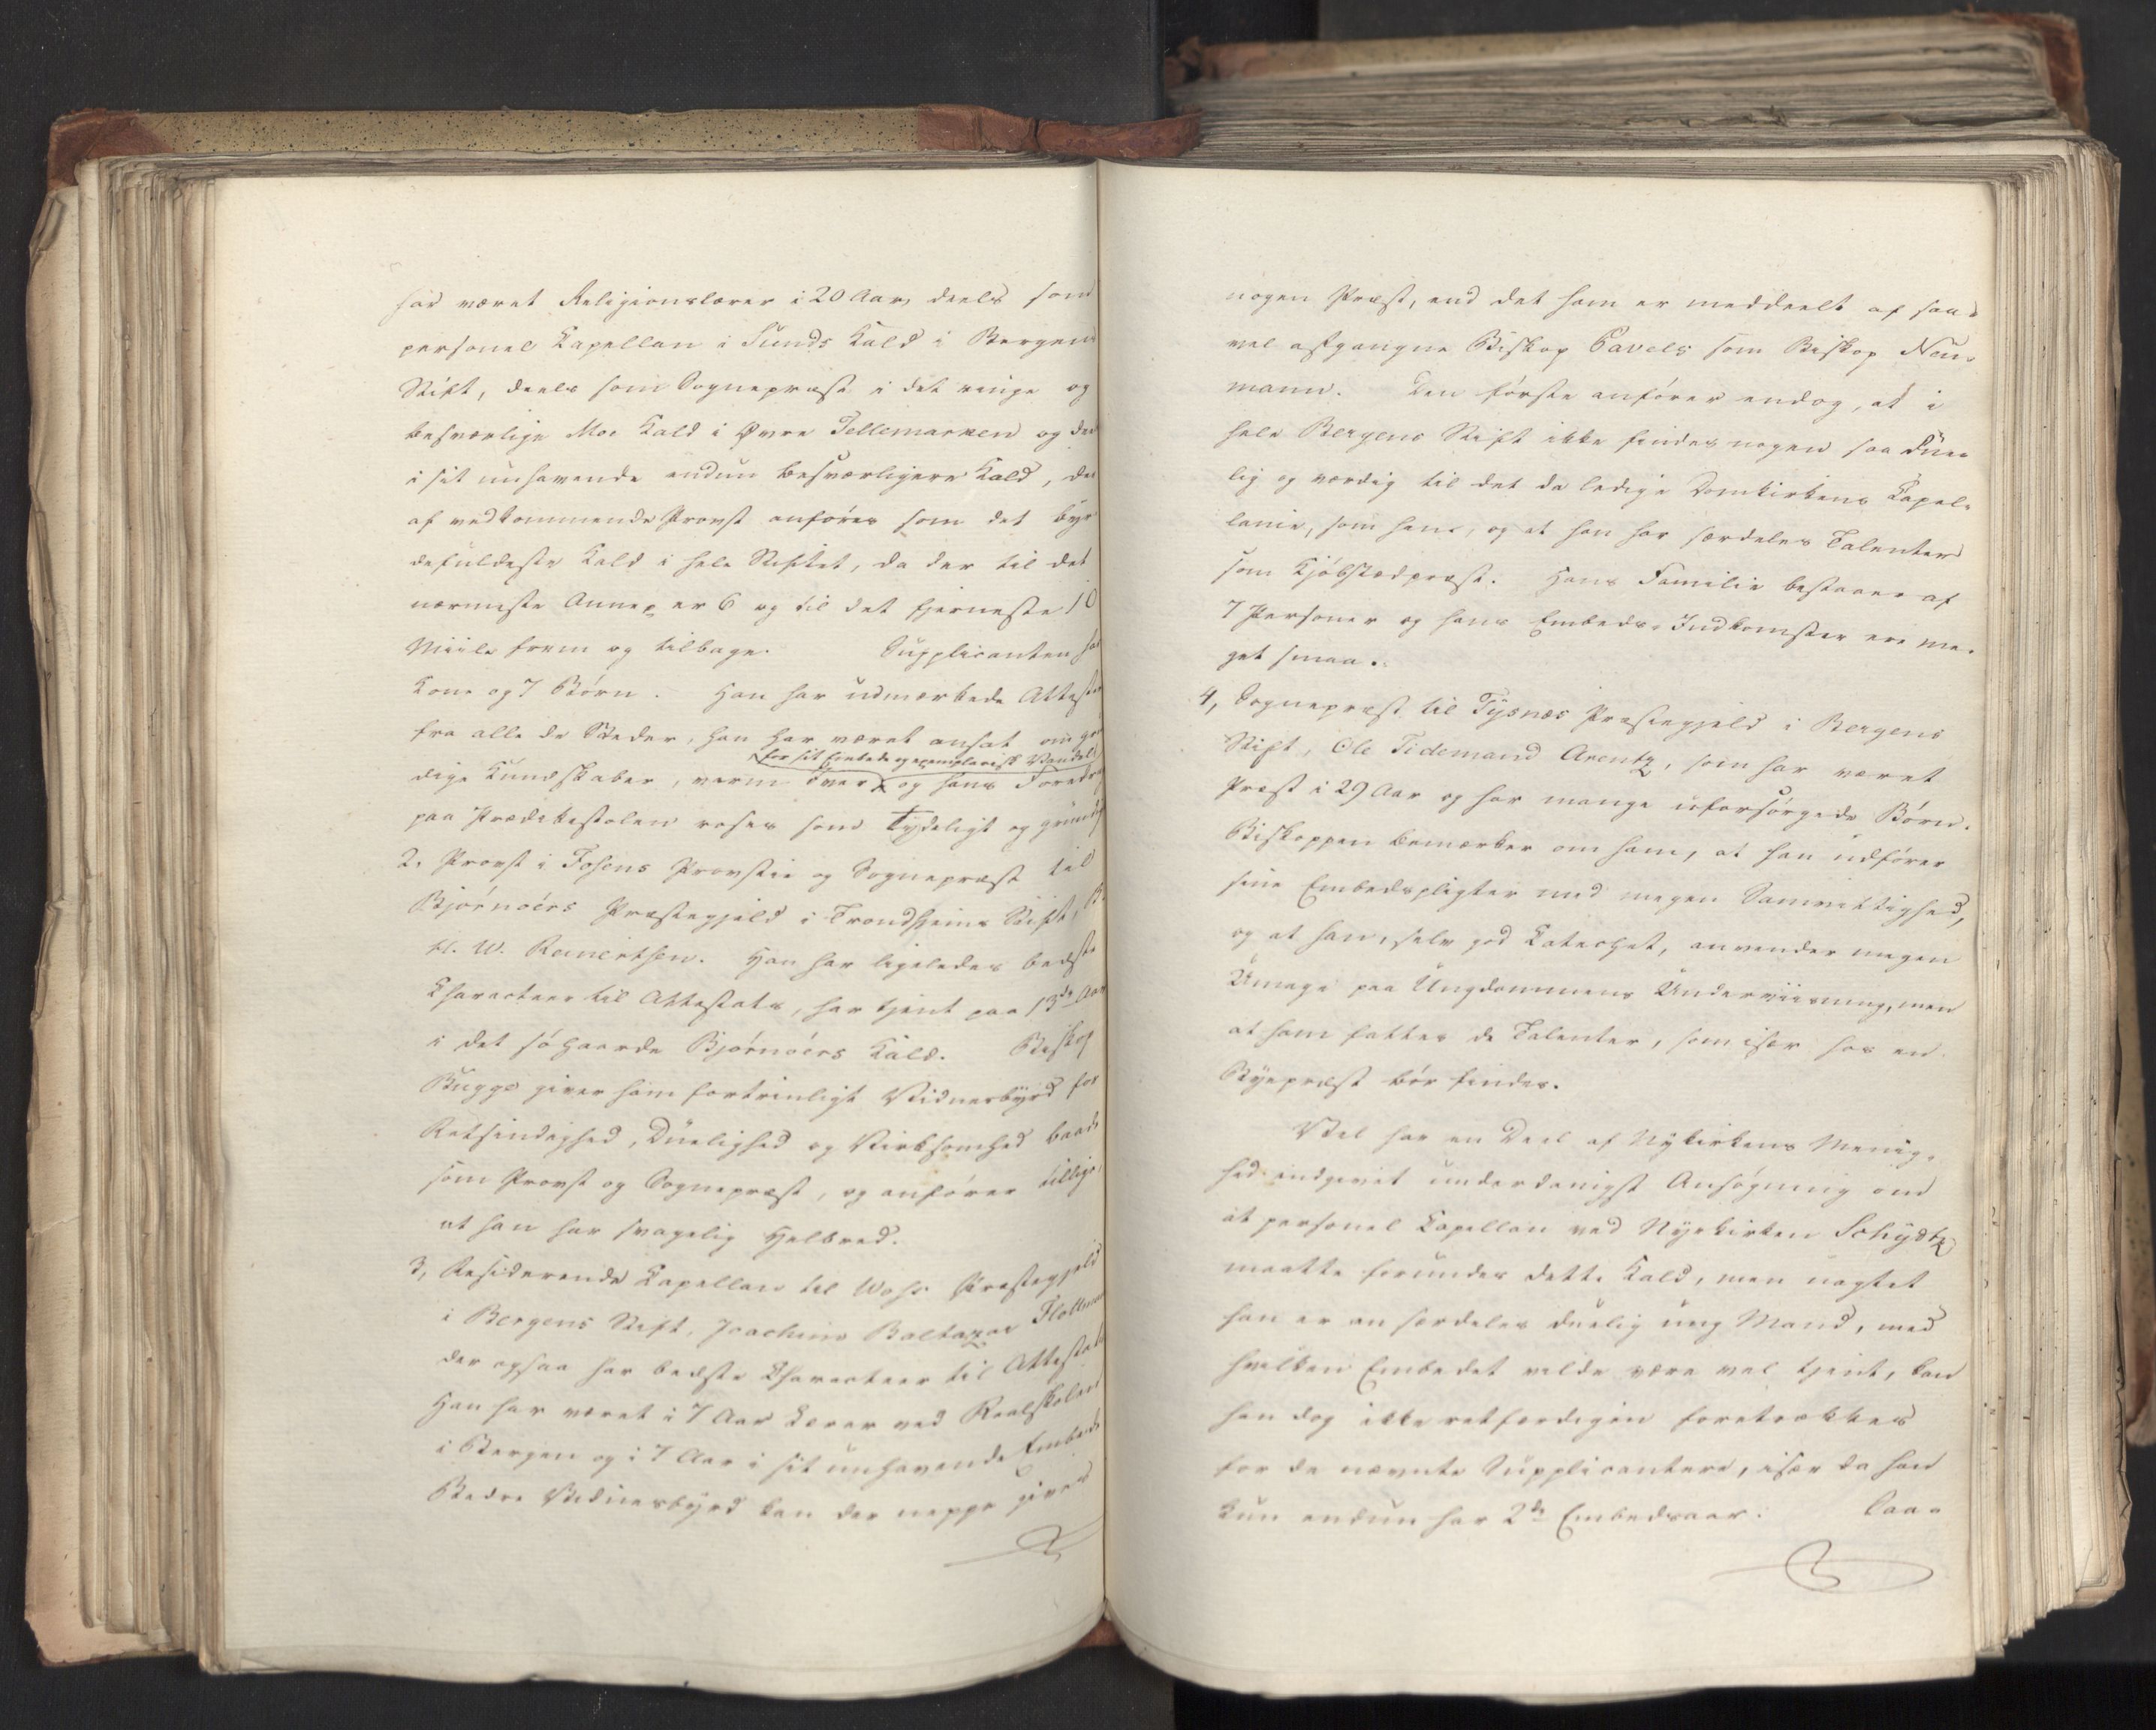 har været Religionslærer i 20 Aar, deels som
personel Capellan i Sunds Kald i Bergens
Stift, deels som Sognepræst i det ringe og
besværlige Moe Kald i Øvre Tellemarken og deels
i sit nuhavende endnu besværligere Kald, der
af vedkommende Provst anføres som det byr
defuldeste Kald i hele Stiftet, da der til det
nærmeste Annex er 6 og til det fjerneste 10
Miile frem og tilbage. Supplicanten har
Kone og 7 Børn. Han har udmærkede Attester
fra alle de Steder, han har været ansat om gru
for sit Embede og exemplarisk Vandel
dige Kundskaber, varm Iver og hans Foredrag
paa Prædikestolen roses som tydeligt og grundigt
2. Provst i Fosens Provstie og Sognepræst til
Bjørnöers Præstegjeld i Trondhjems Stift,
H. W. Reinertsen. Han har ligeledes bedste
Charakteer til Attestats, har tjent paa 13de Aar
i det söhaarde Bjørnöers Kald. Biskop
Bugge giver ham fortrinligt Vidnesbyrd for
Retsindighed, Duelighed og Virksomhed baade
som Provst og Sognepræst, og anfører tillige,
at han har svagelig Helbred.
3, Residerende Capellan til Woss Præstegjeld
i Bergens Stift, Joachim Baltazar Flottmann
der ogsaa har bedste Charakteer til Attestats
Han har været i 7 Aar Lærer ved Realskolen
i Bergen og i 7 Aar i sit nuhavende Embede
Bedre Vidnesbyrd kan der neppe gives
nogen Præst, end det ham er meddeelt af saa-
vel afgangne Biskop Pavels som Biskop Neu-
mann. Den første anfører endog, at i
hele Bergens Stift ikke findes nogen saa due-
lig og værdig til det da ledige Domkirkens Capel-
lanie, som han, og at han har særdeles Talenter
som Kjöbstedpræst. Hans Familie bestaaer af
7 Personer og hans Embeds-Indkomster ere me-
get smaa.
4, Sognepræst til Tysnæs Præstegjeld i Bergens
Stift, Ole Tidemand Arentz, som har været
Præst i 29 Aar og har mange uforsørgede Børn.
Biskoppen bemærker om ham, at han udfører
sine Embedspligter med megen Samvittighed,
og at han, selv god Catechet, anvender megen
Umage paa Ungdommens Underviisning, men
at ham fattes de Talenter, som især hos en
Byepræst bör findes.
Vel har en Deel af Nykirkens Menig-
hed indgivet underdanigst Ansøgning om
at personel Capellan ved Nyekirken Schydtz
maatte forundes dette Kald, men uagtet
han er en særdeles duelig ung Mand, med
hvilken Embedet vilde være vel tjent, kan
han dog ikke retfærdigen foretrækkes
for de nævnte Supplicantere, især da han
kun endnu har 2de Embedsaar. Saa-